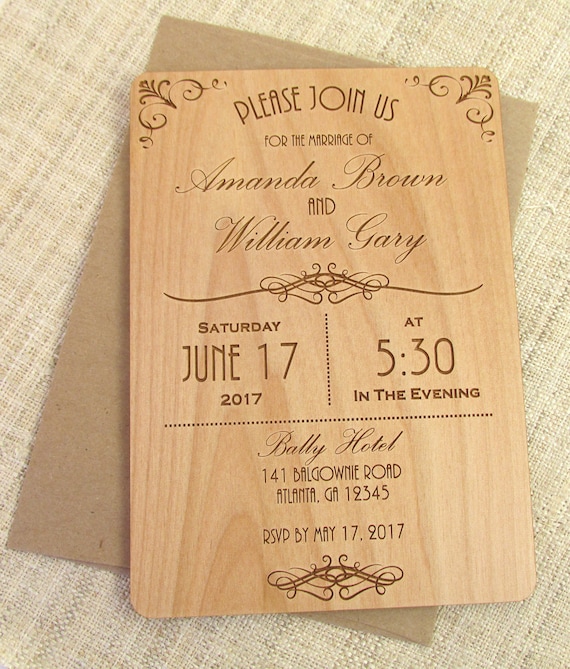 PLEASE JOIN US
FOR THE MARRIAGE OF
Amanda Brown
AND
William Gary
SATURDAY
JUNE 17
2017
AT
5:30
IN THE EVENING
Bally Hotel
141 BALGOWNIE ROAD
ATLANTA, GA 12345
RSVP BY MAY 17, 2017